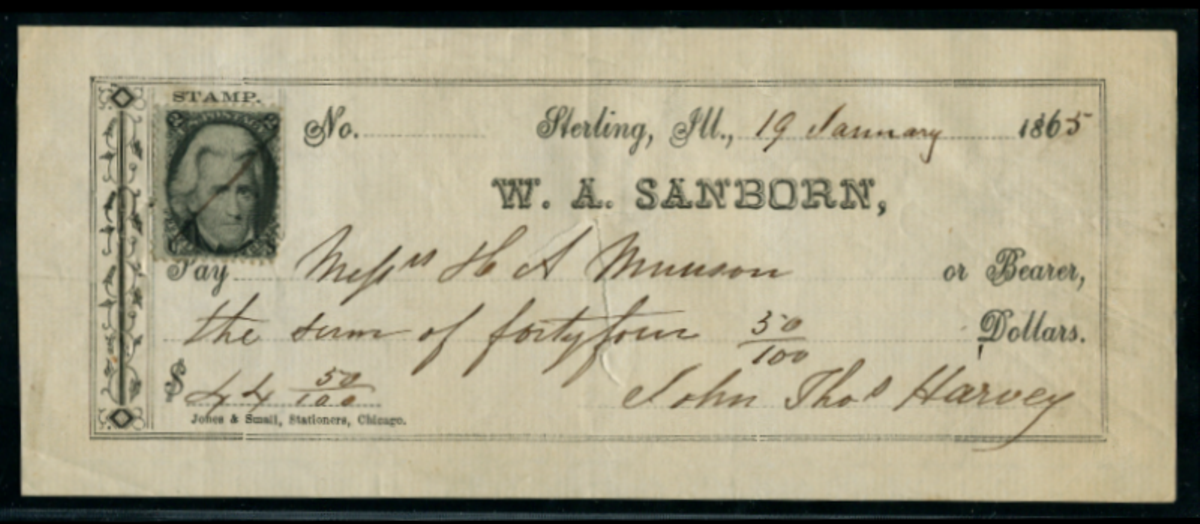 STAMP.
No. Sterling, Ill., 19 January 1865
W. A. SANBORN,
Pay Messrs H A Munson or Bearer,
the sum of fortyfour 50/100 Dollars.
$ 44 50/100 John Thos Harvey
Jones & Small, Stationers, Chicago.